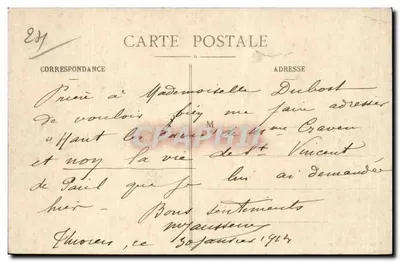 CARTE POSTALE
CORRESPONDANCE
ADRESSE
M
Prière à Mademoiselle Dubost
de vouloir bien me faire adresser
"Haut les de Mme Craven
et non la vie de St Vincent
de Paul que je lui ai demandée
hier - Bons sentiments
ce 30 janvier 1912